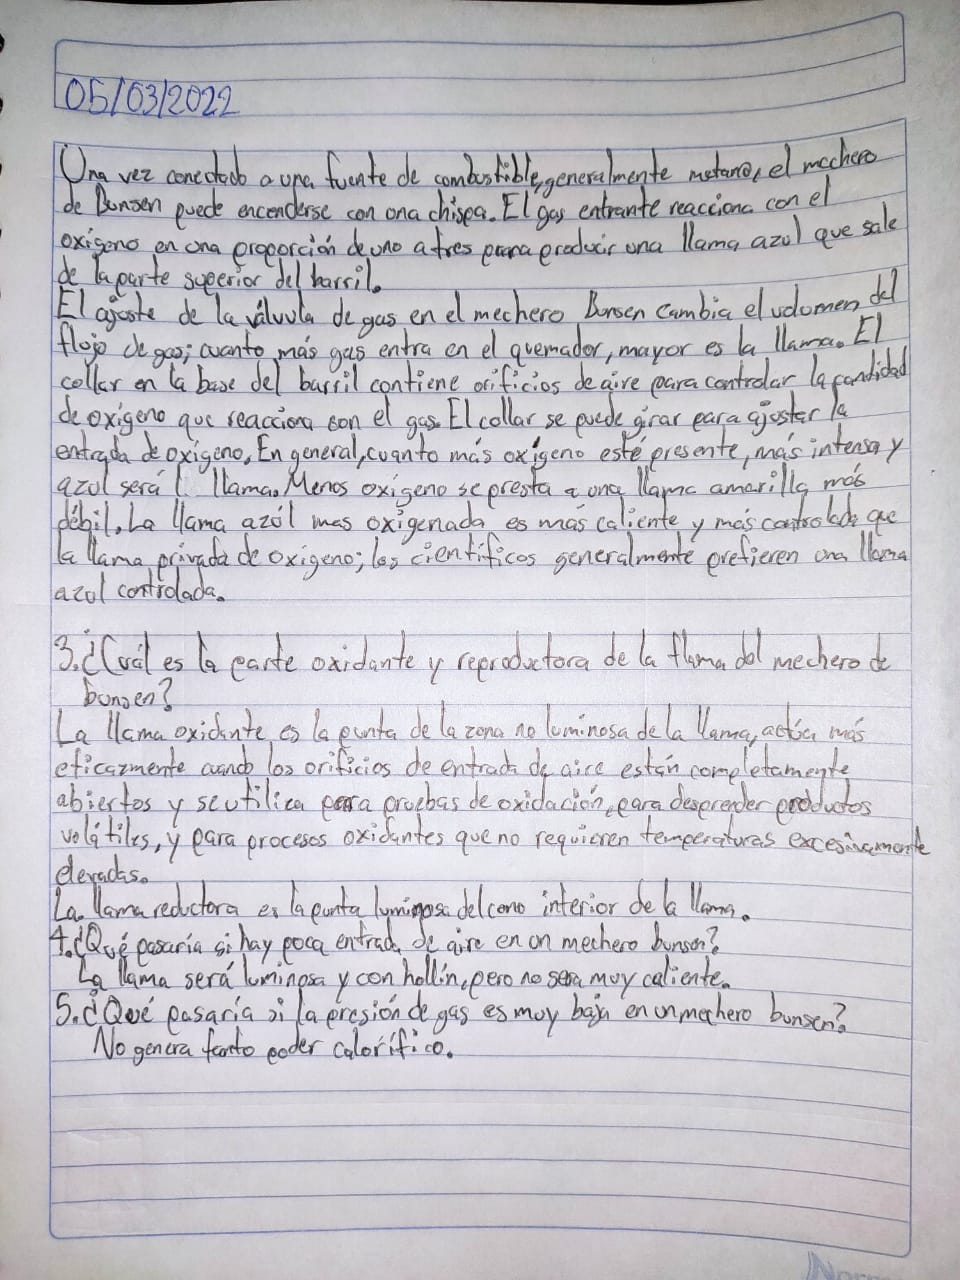 05/03/2022
Una vez conectado a una fuente de combustible, generalmente metano, el mechero
de Bunsen puede encenderse con una chispa. El gas entrante reacciona con el
oxígeno en una proporción de uno a tres para producir una llama azul que sale
de la parte superior del barril.
El ajuste de la válvula de gas en el mechero Bunsen cambia el volumen del
flujo de gas; cuanto más gas entra en el quemador, mayor es la llama. El
collar en la base del barril contiene orificios de aire para controlar la candidad
de oxígeno que reacciona con el gas. El collar se puede girar para ajustar la
entrada de oxígeno. En general, cuanto más oxígeno esté presente, más intensa y
azul será l llama. Menos oxígeno se presta a una llama amarilla más
débil. La llama azúl mas oxigenada es más caliente y más controlada que
la llama privada de oxígeno; los científicos generalmente prefieren una llama
azul controlada.
3. ¿Cuál es la parte oxidante y reproductora de la flama del mechero de
bunsen?
La llama oxidante es la punta de la zona no luminosa de la llama, actúa más
eficazmente cuando los orificios de entrada de aire están completamente
abiertos y se utiliza para pruebas de oxidación, para desprender productos
volátiles, y para procesos oxidantes que no requieren temperaturas excesivamente
elevadas.
La llama reductora es la punta luminosa del cono interior de la llama.
4. ¿Qué pasaría si hay poca entrada de aire en un mechero bunsen?
La llama será luminosa y con hollín, pero no sera muy caliente.
5. ¿Qué pasaría si la presión de gas es muy baja en un mechero bunsen?
No genera tanto poder calorífico.